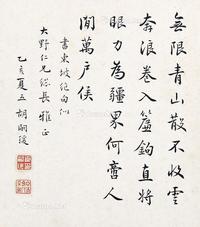 無限青山散不收雲
奔浪卷入簾鉤直將
眼力為疆界何啻人
間萬戶侯
書東坡絕句似
大野仁兄總長雅正
乙亥夏五胡嗣瑗